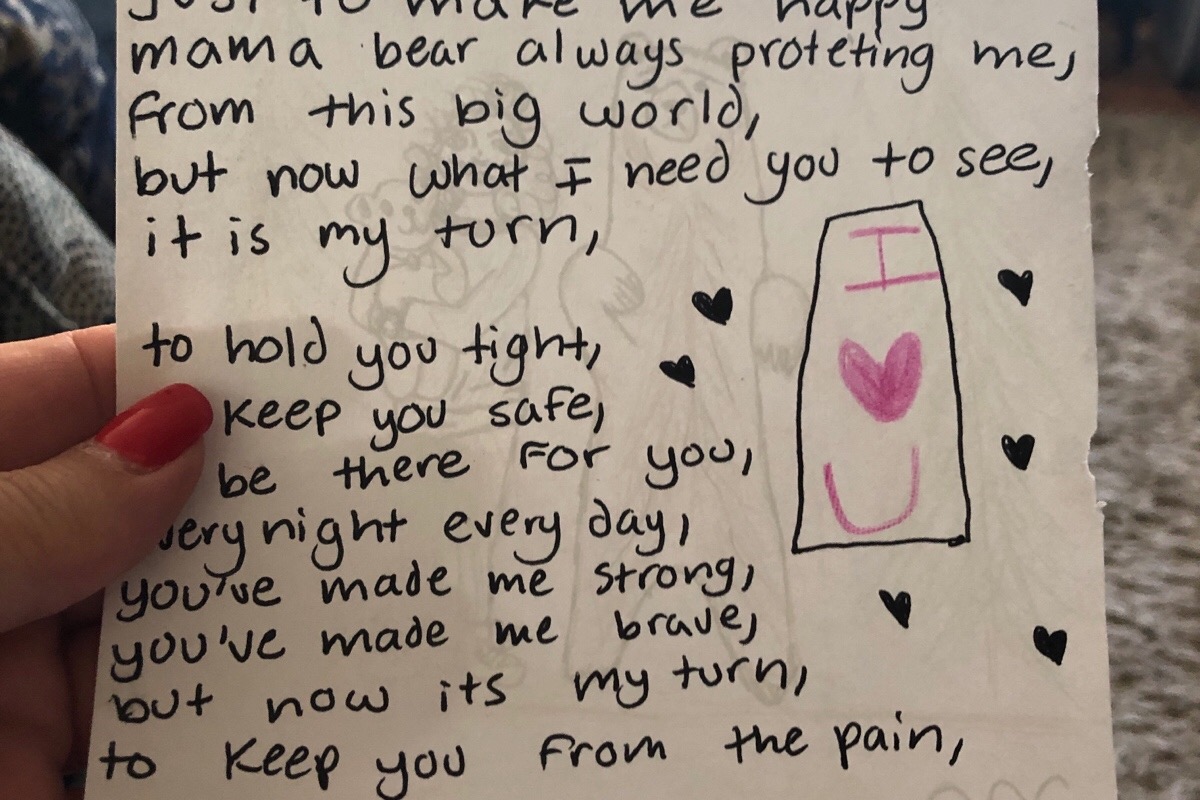 Just to make me happy
mama bear always proteting me,
from this big world,
but now what I need you to see,
it is my turn,
to hold you tight,
keep you safe,
be there for you,
night every day,
you've made me strong,
you've made me brave,
but now its my turn,
to keep you from the pain,
I
U